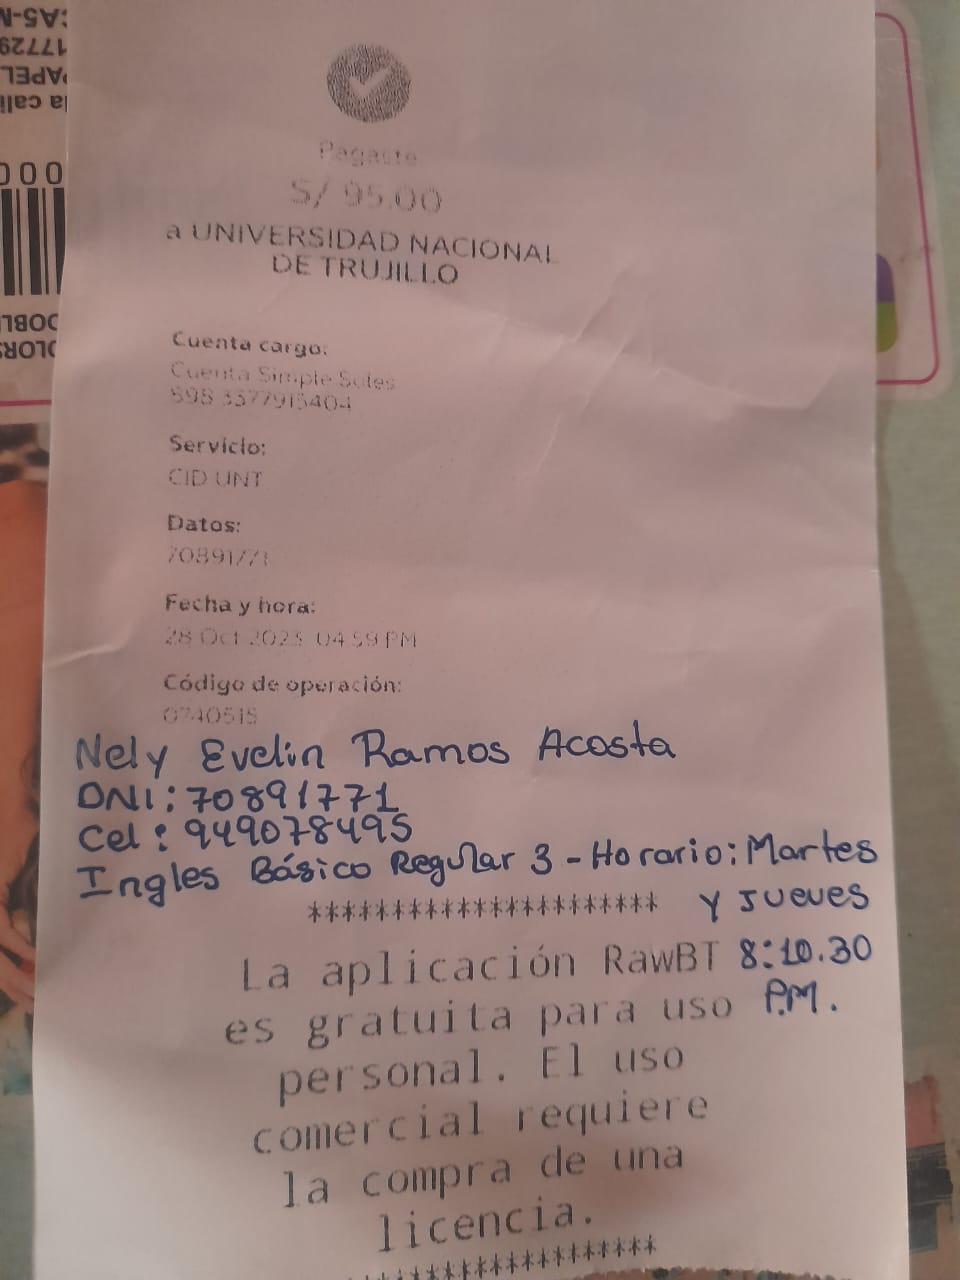 Pagaste
S/ 95.00
a UNIVERSIDAD NACIONAL
DE TRUJILLO
Cuenta cargo:
Cuenta Simple Soles
898 3377915404
Servicio:
CID UNT
Datos:
70891771
Fecha y hora:
28 Oct 2023 04:59 PM
Código de operación:
0740515
Nely Evelin Ramos Acosta
DNI: 70891771
Cel: 949078495
Ingles Básico Regular 3 - Horario: Martes
********************** y Jueves
La aplicación RawBT 8:10.30
es gratuita para uso P.M.
personal. El uso
comercial requiere
la compra de una
licencia.
17729
PAPEL
000